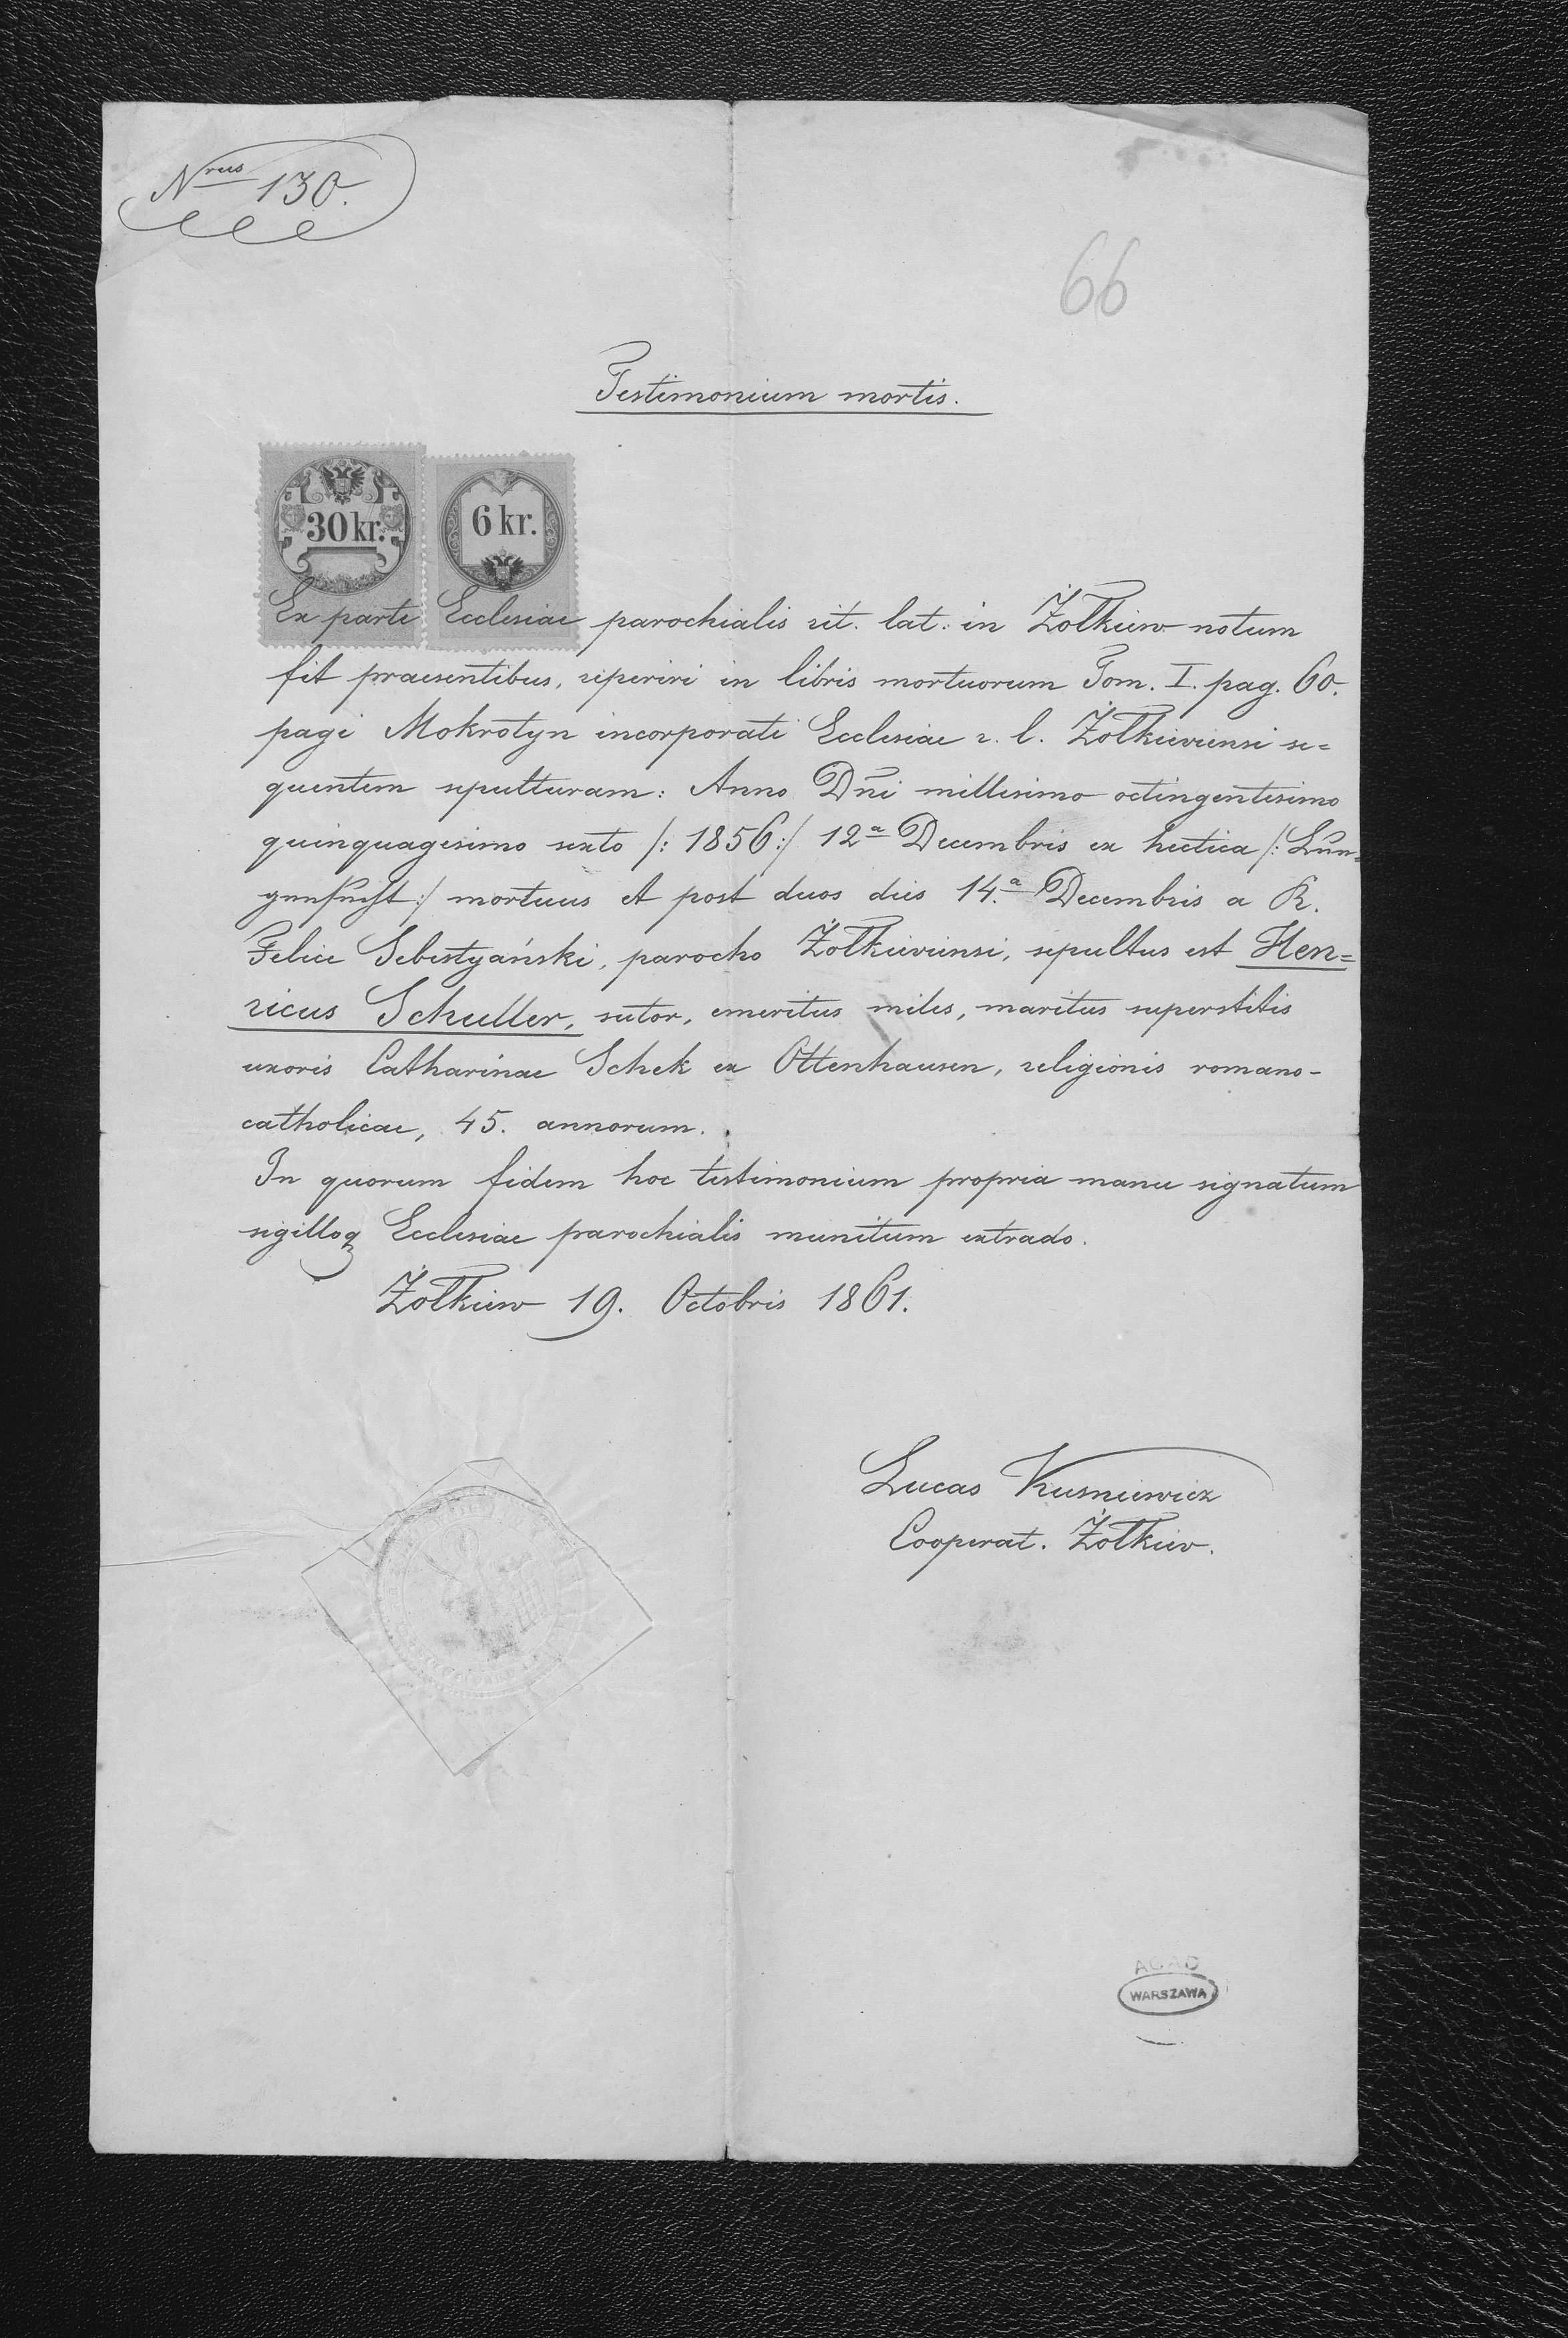 Nrus 130.
66
Testimonium mortis.
30 kr.
6 kr.
Ex parte Ecclesiae parochialis rit. lat. in Żołkiew notum
fit praesentibus, reperiri in libris mortuorum Tom. I. pag. 60.
pagi Mokrotyn incorporati Ecclesiae r. l. Żołkieviensi se=
quentem sepulturam: Anno Dn̄i millesimo octingentesimo
quinquagesimo sexto /: 1856 :/ 12a Decembris ex hectica /: Lun=
gensucht :/ mortuus et post duos dies 14.a Decembris a R.
Felice Sebestyański, parocho Żołkieviensi, sepultus est Hen=
ricus Schuller, sutor, emeritus miles, maritus superstitis
uxoris Catharinae Schek ex Ottenhausen, religionis romano-
catholicae, 45. annorum.
In quorum fidem hoc testimonium propria manu signatum
sigilloq Ecclesiae parochialis munitum extrado.
Żołkiew 19. Octobris 1861.
Lucas Kusniewicz
Cooperat. Żołkiew.
AGAD
WARSZAWA